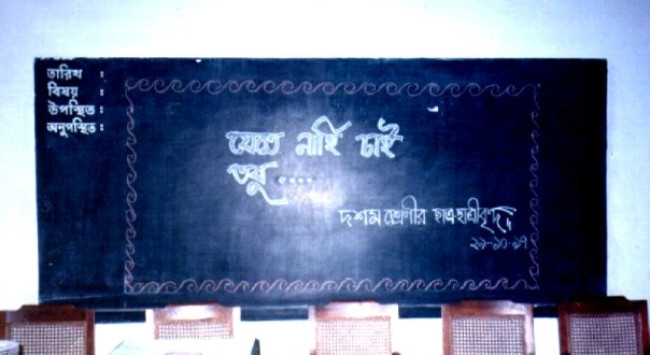 তারিখ :
বিষয় :
উপস্থিত :
অনুপস্থিত :
যেতে নাহি চাই
তবু ....
দশম শ্রেণীর ছাত্রছাত্রীবৃন্দ
২১-১০-১৭